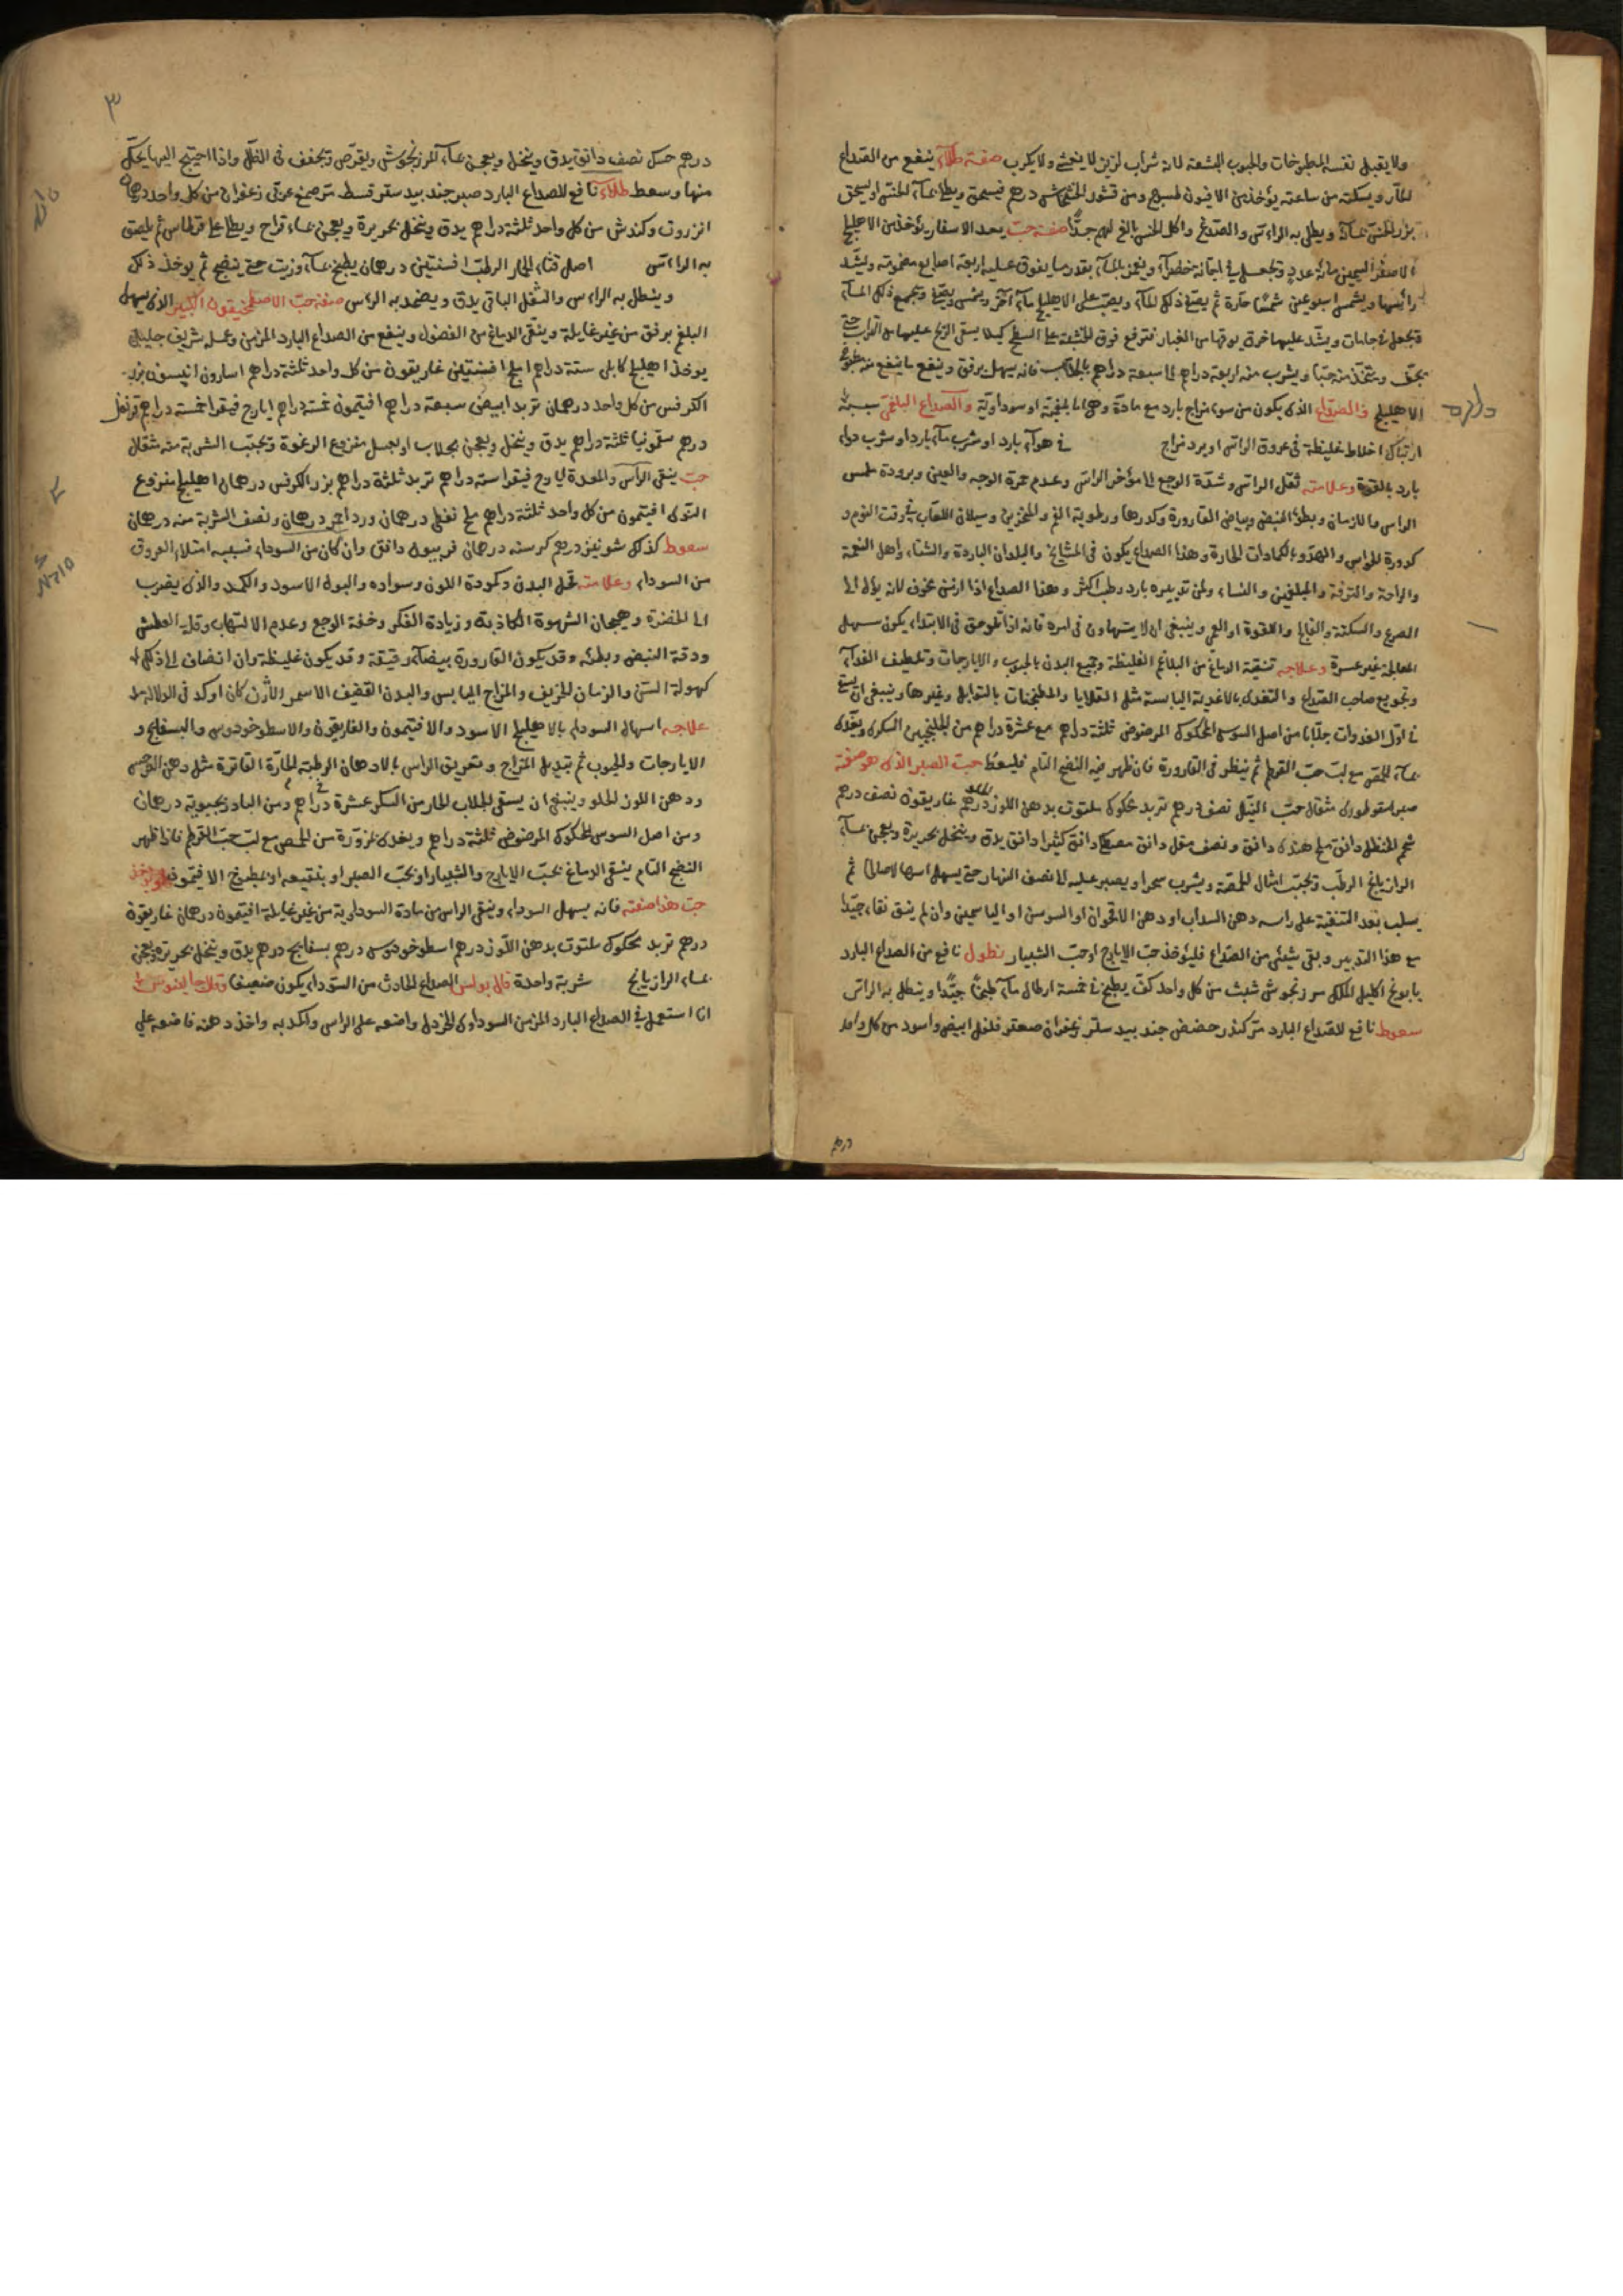 ولا يقبل نفسه المطبوخات والحبوب البشعة لانه شراب لزيز لا يغثى ولا يكرب صفة طلاء ينفع من الصداع
الحار ويسكنه من ساعته يؤخذ من الافيون ومن قشور الخشخاش درهم فيسحق ويطلى بماء الخس او يسحق
بزر الخس بماء ويطلى به الراس والصدغ واكل الخس بالغ لهم جدا صفة حب يؤخذ من الاهليلج
الاصفر السمين مائة عدد وتجعل في اجانة خضراء ويغمر بالماء بقدر ما يفوق عليه اربعة اصابع مضمومة ويشد
راسها ويشمس اسبوعين شمسا حارة ثم يصفى ذلك الماء ويصب على الاهليلج ماء آخر ويشمس ويصفى ويجمع ذلك الماء
وتجعل في جامات ويشد عليها خرقة يوقها من الغبار فترفع فوق الخشبة على السطح كيلا يسقى الريح عليها من التراب حتى
يجف ويتخذ منه حبا ويشرب منه اربعة دراهم الى سبعة دراهم بالجلاب فانه يسهل برفق وينفع ما ينفع منه مطبوخ
الاهليلج في الصداع الذى يكون من سوء مزاج بارد مع مادة وهى اما بلغمية او سوداوية والصداع البلغمى سببه
ارتباك اخلاط غليظة في عروق الراس او برد مزاج في هواء بارد او شرب ماء بارد او شرب دواء
بارد بالقوة وعلامته ثقل الراس وشدة الوجع الى مؤخر الراس وعدم حمرة الوجه والعين وبرودة ملمس
الراس والازمان وبطؤ النبض وبياض القارورة وكدرها ورطوبة الفم والمنخرين وسيلان اللعاب في وقت النوم و
كدورة الحواس والهدوء بالكمادات الحارة وهذا الصداع يكون في المشايخ والبلدان الباردة والشتاء واهل النعمة
والراحة والترفة والمبلغمين والنساء ولمن تدبيره بارد رطب اكثر وهذا الصداع اذا ازمن مخوف لانه يؤل الى
الصرع والسكتة والفالج واللقوة او العمى وينبغى ان لا يتهاون في امره فانه اذا تلوحق في الابتداء يكون سهل
المعالجة غير عسرة وعلاجه تنقية الدماغ من البلاغم الغليظة وجميع البدن بالحبوب والايارجات وتلطيف الغذاء
وتجويع صاحب الصداع والتغذى بالاغذية اليابسة مثل القلايا والمطجنات بالتوابل وغيرها وينبغى ان يسقى
في اول الغدوات جلابا من اصل السوس المحكوك المرضوض ثلثة دراهم مع عشرة دراهم من الجلنجبين السكرى ويغذى
بماء الحمص مع لب حب القرطم ثم ينظر في القارورة فان ظهر فيه النضج التام فليعط حب الصبر الذى هو صفته
صبر اسقوطرى مثقال حب النيل نصف درهم تربد محكوك ملتوت بدهن اللوز درهم غاريقون نصف درهم
شحم الحنظل دانق ملح هندى دانق ونصف مقل دانق مصطكى دانق كثيرا دانق يدق وينخل بحريرة ويعجن بماء
الرازيانج الرطب وتحبب امثال الحمصة ويشرب سحرا ويصبر عليه الى نصف النهار حتى يسهل اسهالا صالحا ثم
يسكب بعد التنقية على راسه دهن السداب او دهن الاقحوان او السوسن او الياسمين وان لم ينق نقاء جيدا
مع هذا التدبير وبقى شيئ من الصداع فليؤخذ حب الايارج او حب الشبيار نطول نافع من الصداع البارد
بابونج اكليل الملك مرزنجوش شبث من كل واحد كف يطبخ في خمسة ارطال ماء طبخا جيدا وينطل به الراس
سعوط نافع للصداع البارد مر كندر حضض جند بيدستر زعفران صعتر فلفل ابيض واسود من كل واحد
درهم
٣
درهم مسك نصف دانق يدق وينخل ويعجن بماء المرزنجوش ويقرص وتجفف في الظل واذا احتيج اليها يحك
منها وسعط طلاء نافع للصداع البارد صبر جند بيدستر قسط مر صمغ عربى زعفران من كل واحد درهمان
انزروت وكندش من كل واحد ثلثة دراهم يدق وينخل بحريرة ويعجن بماء قراح ويطلى على قرطاس ثم يلصق
به الراس اصل قثاء الحمار الرطب افسنتين درهمان يطبخ بماء وزيت حتى ينضج ثم يوخذ ذلك
وينطل به الراس والثفل الباقى يدق ويضمد به الراس صفة حب الاصطمخيقون الكبير الذى يسهل
البلغم برفق من غير غايلة وينقى الدماغ من الفضول وينفع من الصداع البارد المزمن وعمله شريف جليل
يوخذ اهليلج كابلى ستة دراهم املج افسنتين غاريقون من كل واحد ثلثة دراهم اسارون انيسون بزر
الكرفس من كل واحد درهمان تربد ابيض سبعة دراهم افتيمون خمسة دراهم ايارج فيقرا خمسة دراهم قرنفل
درهم سقمونيا ثلثة دراهم يدق وينخل ويعجن بجلاب او بعسل منزوع الرغوة وتحبب الشربة منه مثقال
حب ينقى الراس والمعدة ايارج فيقرا ستة دراهم تربد ثلثة دراهم بزر الكرفس درهمان اهليلج منزوع
النوى افتيمون من كل واحد ثلثة دراهم ملح نفطى درهمان ورد احمر درهمان ونصف الشربة منه درهمان
سعوط كذلك شونيز درهم كرسنه درهمان فربيون دانق وان كان من السوداء فسببه امتلاء العروق
من السوداء وعلامته قحل البدن وكمودة اللون وسواده والبول الاسود والكمد والذى يضرب
الى الخضرة وهيجان الشهوة الكاذبة وزيادة الفكر وخفة الوجع وعدم الالتهاب وقلة العطش
ودقة النبض وبطئه وقد يكون القارورة بيضاء رقيقة وقد يكون غليظة وان انضاف الى ذلك
كهولة السن والزمان الخريف والمزاج اليابس والبدن القضيف الاسمر الازب كان اوكد في الدلالة
علاجه اسهال السوداء بالاهليلج الاسود والافتيمون والغاريقون والاسطوخودوس والبسفايج و
الايارجات والحبوب ثم تبديل المزاج وتعريق الراس بالادهان الرطبة الحارة الفاترة مثل دهن النرجس
ودهن اللوز الحلو وينبغى ان يسقى الجلاب الحار من السكر عشرة دراهم ومن البادرنجبوية درهمان
ومن اصل السوس المحكوك المرضوض ثلثة دراهم ويغذى بمزورة من الحمص مع لب حب القرطم فاذا ظهر
النضج التام ينقى الدماغ بحب الايارج والشبيار او بحب الصبر او بنقيعه او بمطبوخ الافتيمون
حب هذا صفته فانه يسهل السوداء وينقى الراس من مادة السوداوية من غير غايلة افتيمون درهمان غاريقون
درهم تربد محكوك ملتوت بدهن اللوز درهم اسطوخودوس درهم بسفايج درهم يدق وينخل بحريرة ويعجن
بماء الرازيانج شربة واحدة قال بولس الصداع الحادث من السوداء يكون ضعيفا وقال جالينوس
انا استعمل في الصداع البارد المزمن السوداوى الخردل واضعه على الراس واكمد به واخذ دهنه فاضعه على